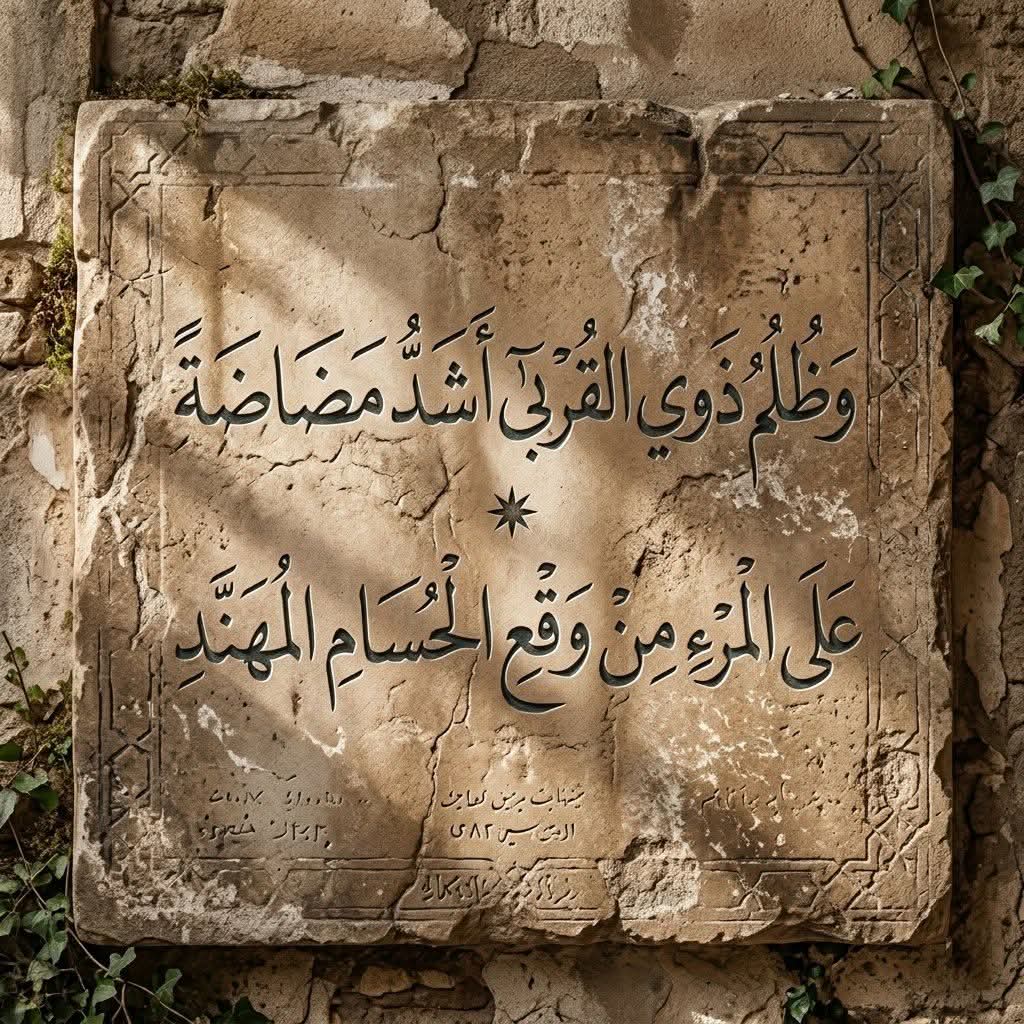 وَظُلْمُ ذَوِي القُرْبَى أَشَدُّ مَضَاضَةً
عَلَى الْمَرْءِ مِنْ وَقْعِ الْحُسَامِ الْمُهَنَّدِ